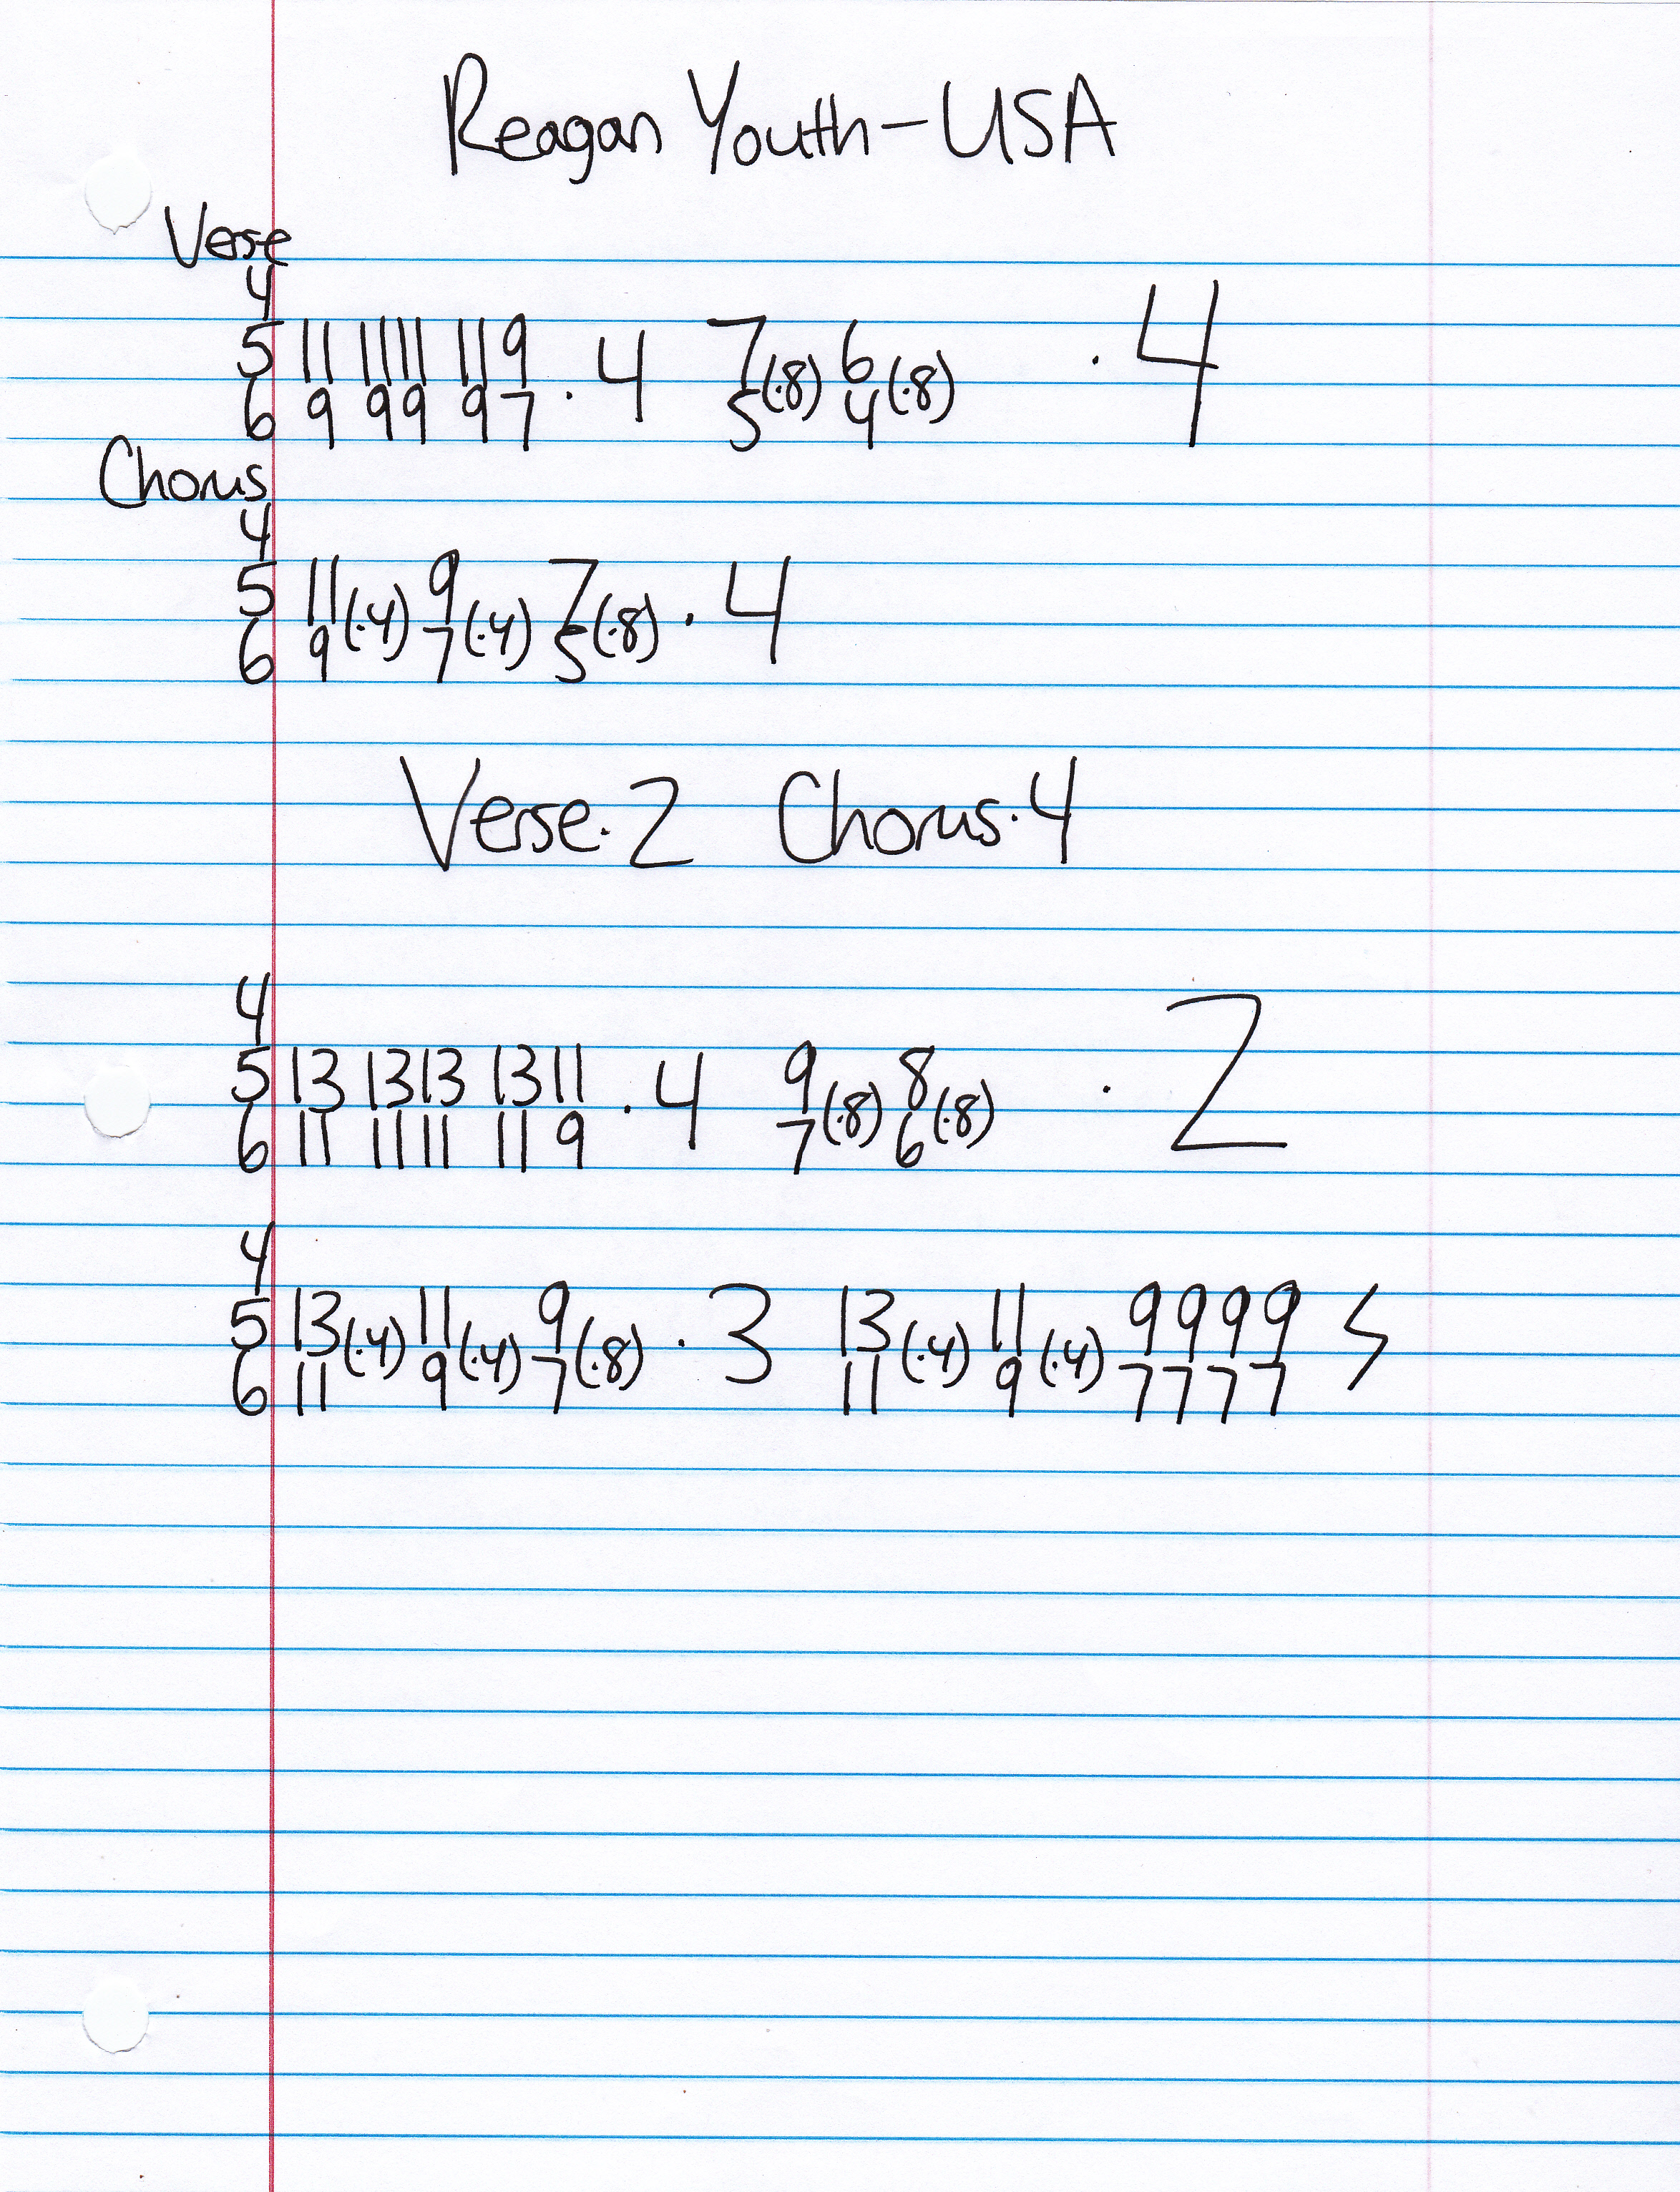 Reagan Youth-USA
Verse
4
5 11 11 11 11 9 · 4 7 (·8) 6 (·8) · 4
6 9 9 9 9 7 5 4
Chorus
4
5 11 (·4) 9 (·4) 7 (·8) · 4
6 9 7 5
Verse·2 Chorus·4
4
5 13 13 13 13 11 · 4 9 (·8) 8 (·8) · 2
6 11 11 11 11 9 7 6
4
5 13 (·4) 11 (·4) 9 (·8) · 3 13 (·4) 11 (·4) 9 9 9 9
6 11 9 7 11 9 7 7 7 7